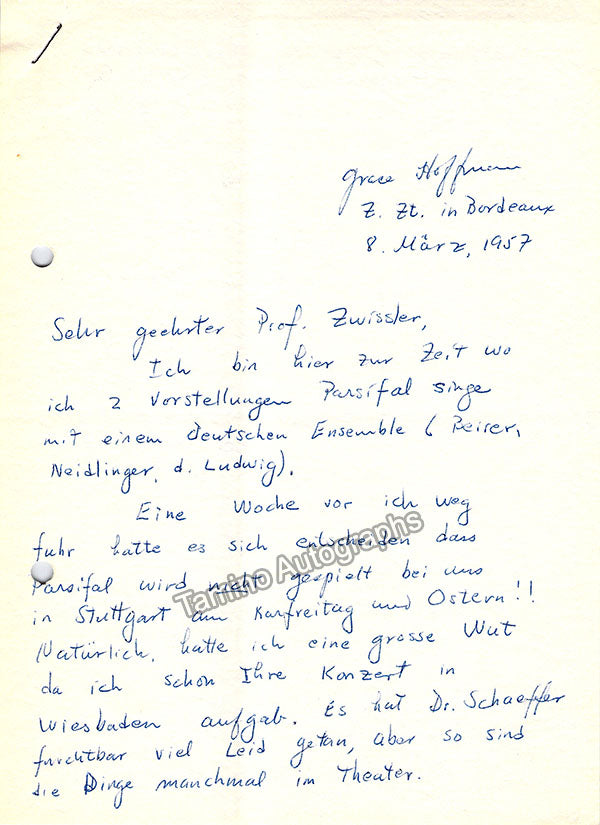 Grace Hoffman
z. Zt. in Bordeaux
8. März, 1957
Sehr geehrter Prof. Zwissler,
Ich bin hier zur Zeit wo
ich 2 Vorstellungen Parsifal singe
mit einem deutschen Ensemble (Beirer,
Neidlinger, d. Ludwig).
Eine Woche vor ich weg
fuhr hatte es sich entscheiden dass
Parsifal wird nicht gespielt bei uns
in Stuttgart am Karfreitag und Ostern!!
Natürlich, hatte ich eine grosse Wut
da ich schon Ihre Konzert in
Wiesbaden aufgab. Es hat Dr. Schaeffer
furchtbar viel Leid getan, aber so sind
die Dinge manchmal im Theater.
Tamino Autographs